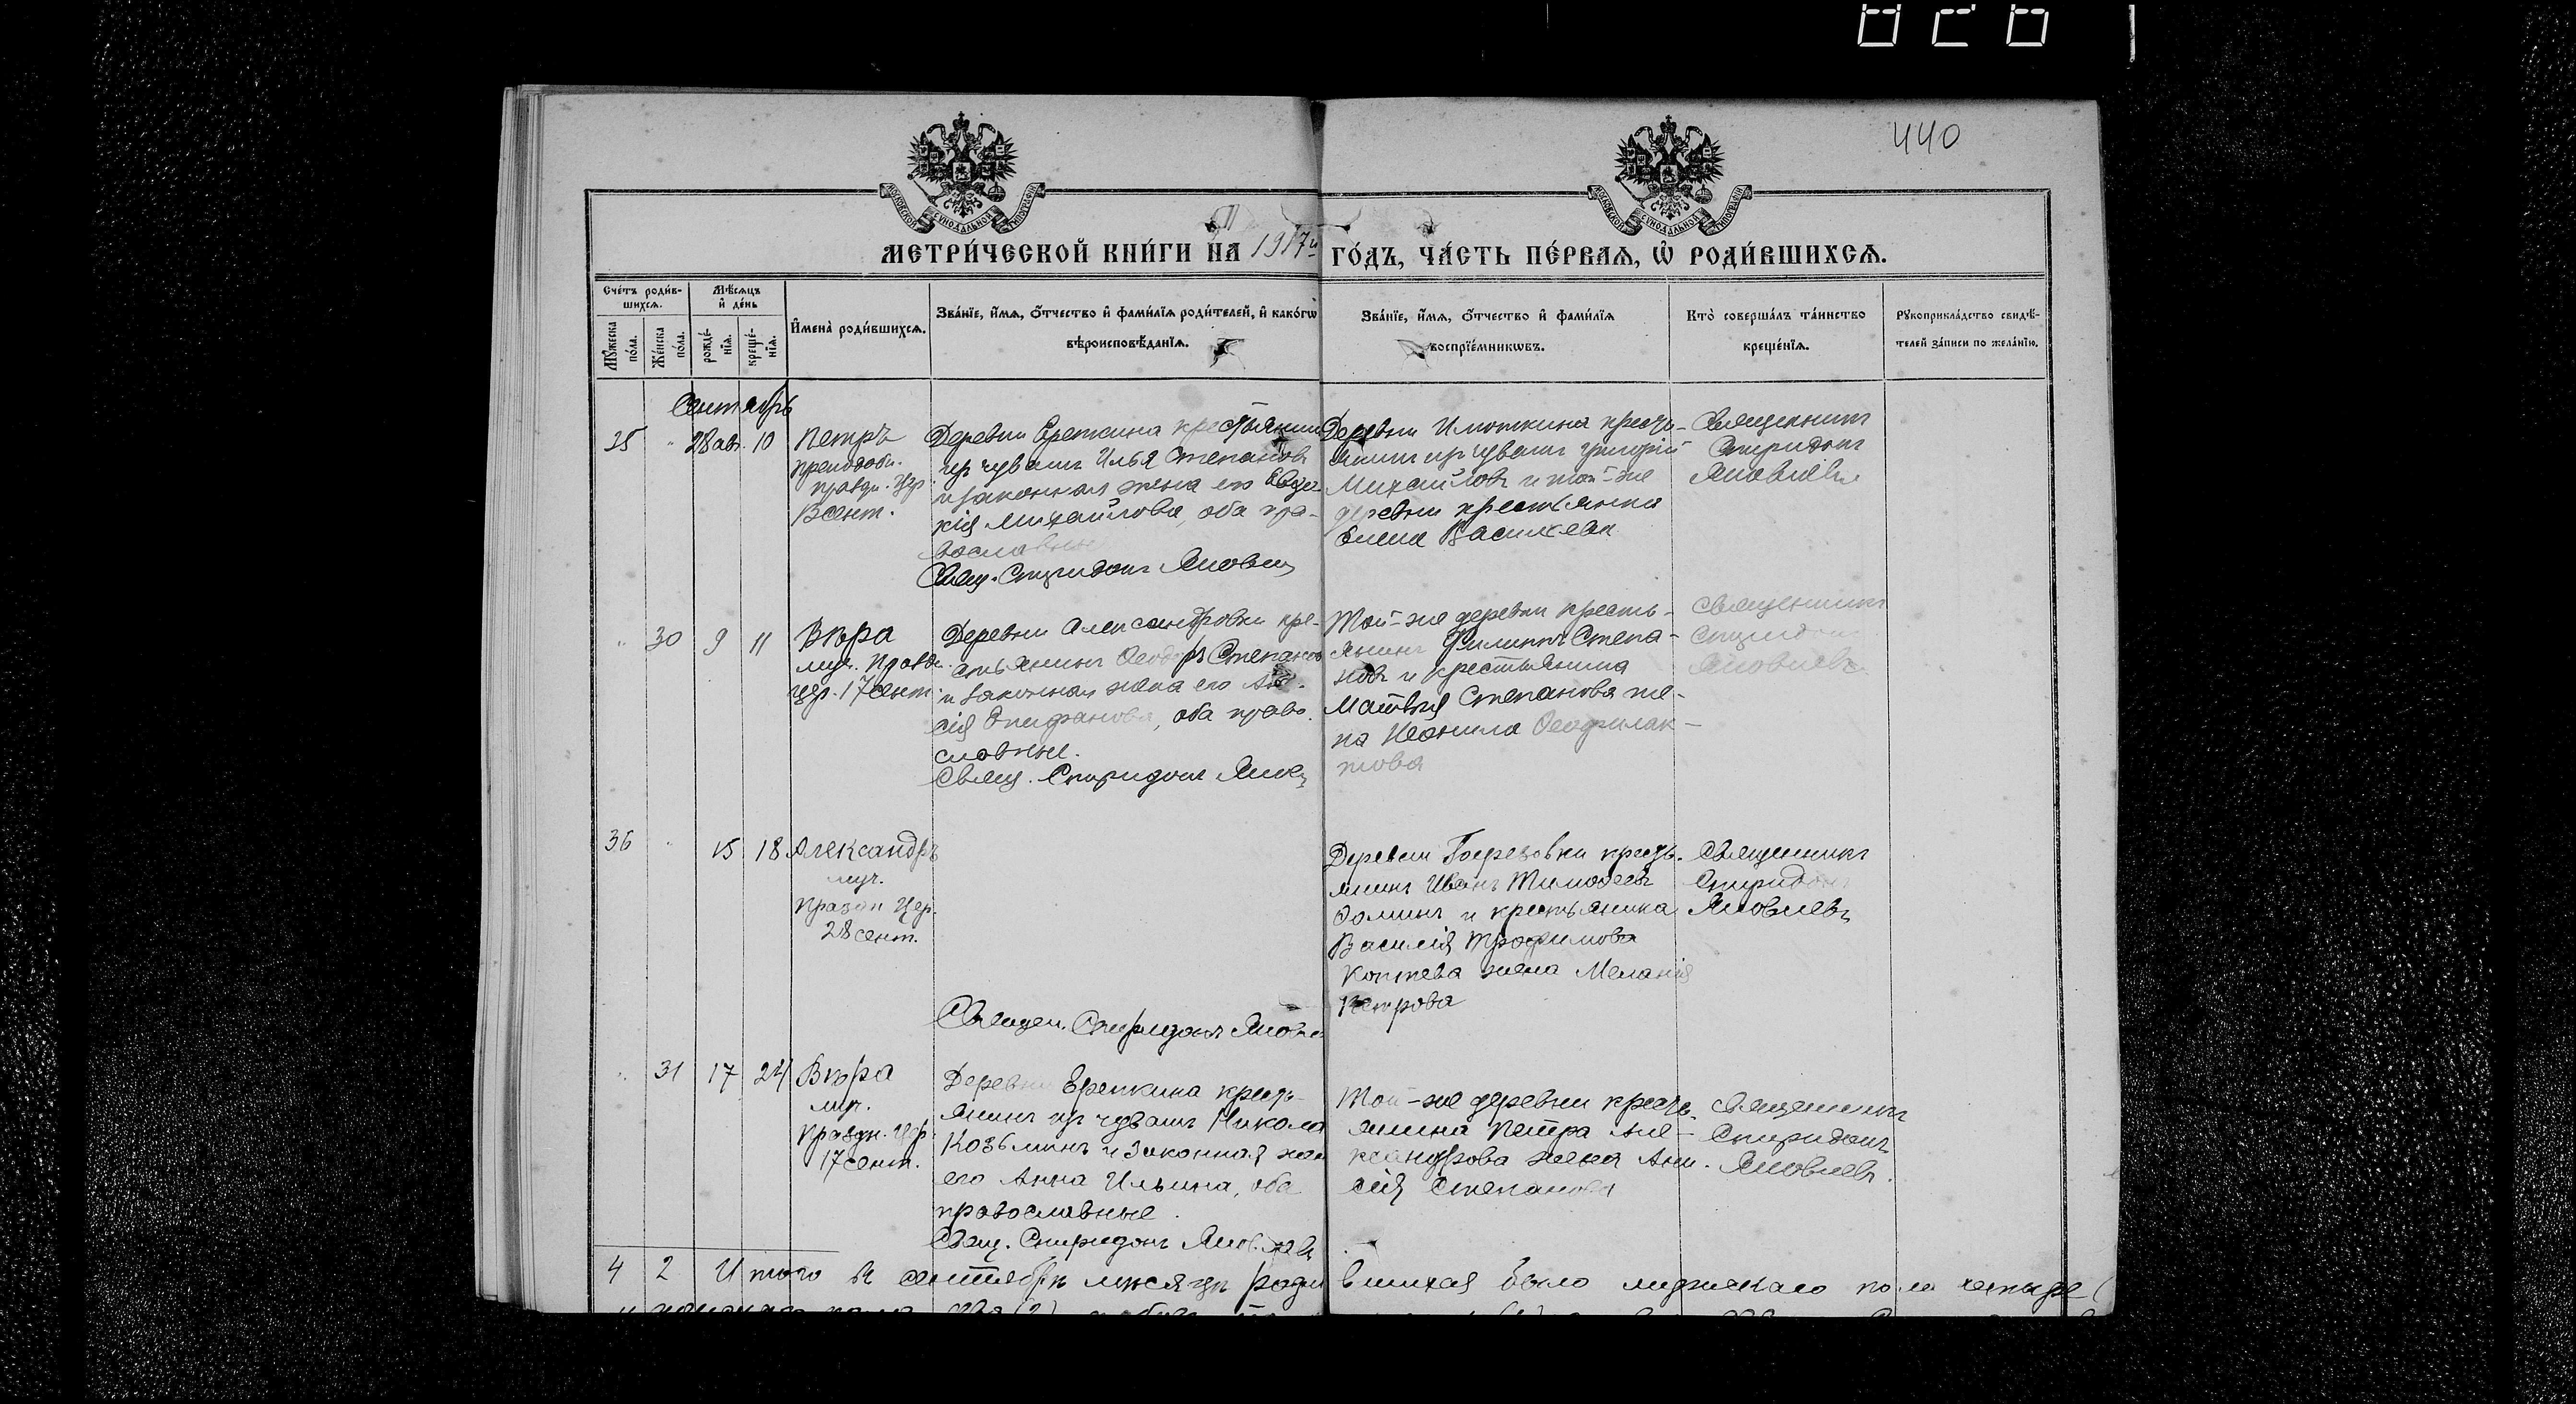 440
МЕТРИ́ЧЕСКОЙ КНИ́ГИ НА 1917й ГО́ДЪ, ЧА́СТЬ ПЕ́РВАѦ, Ѡ҆ РОДИ́ВШИХСѦ.
Сче́тъ роди́в-
шихсѧ.
Мѹ́жеска
по́ла.
Же́нска
по́ла.
Мѣ́сѧцъ
и҆ де́нь
рожде́-
нїѧ.
креще́-
нїѧ.
И҆мена̀ роди́вшихсѧ.
Зва́нїе, и҆́мѧ, ѻ҆́тчество и҆ фами́лїѧ роди́телей, и҆ како́гѡ
вѣроисповѣ́данїѧ.
Зва́нїе, и҆́мѧ, ѻ҆́тчество и҆ фами́лїѧ
воспрїе́мникѡвъ.
Кто̀ соверша́лъ та́инство
креще́нїѧ.
Рѹкоприкла́дство свидѣ́-
телей за́писи по жела́нїю.
Сентябрь
35 " 28 авг. 10
Петръ
преподобн.
праздн. цер
сент.
Деревни Ереткина крестьянинъ
изъ чувашъ Илья Степановъ
и законная жена его Евдо
кія Михайлова, оба пра-
вославные
Свящ. Спиридонъ Яковл
Деревни крестъ-
янинъ изъ чувашъ Григорій
Михайловъ и той-же
деревни крестьянка
Елена Васильева
Священникъ
Спиридонъ
Яковлевъ
" 30 9 11
Вѣра
муч. Праздн.
цер. 17 сент.
Деревни Александровки кре-
стьянинъ Ѳеодоръ Степановъ
и законная жена его
сія Епифанова, оба право-
славные.
Свящ. Спиридонъ Яков
Той-же деревни кресть-
янинъ Филиппъ Степа-
новъ и крестьянина
Матвѣя Степанова же-
на Неонила Ѳеофилак-
това
Священникъ
Спиридонъ
Яковлевъ
36 " 15 18
Александръ
муч.
Праздн. Цер.
28 сент.
Священ. Спиридонъ Яковле
Деревни кресть-
янинъ Иванъ Тимоѳеевъ
и крестьянина
Василія Трофимова
Коптева жена Меланія
Петрова
Священникъ
Спиридонъ
Яковлевъ
" 31 17 24
Вѣра
муч.
Праздн. Цер.
17 сент.
Деревни Ереткина кресть-
янинъ изъ чувашъ Никола
Козьминъ и законная жена
его Анна Ильина, оба
православные.
Свящ. Спиридонъ Яковлевъ
Той-же деревни кресть-
янина Петра Але-
ксандрова жена Ани-
сія Степанова
Священникъ
Спиридонъ
Яковлевъ.
4 2 Итого въ сентябрѣ мѣсяцѣ родившихся было мужескаго пола четыре (